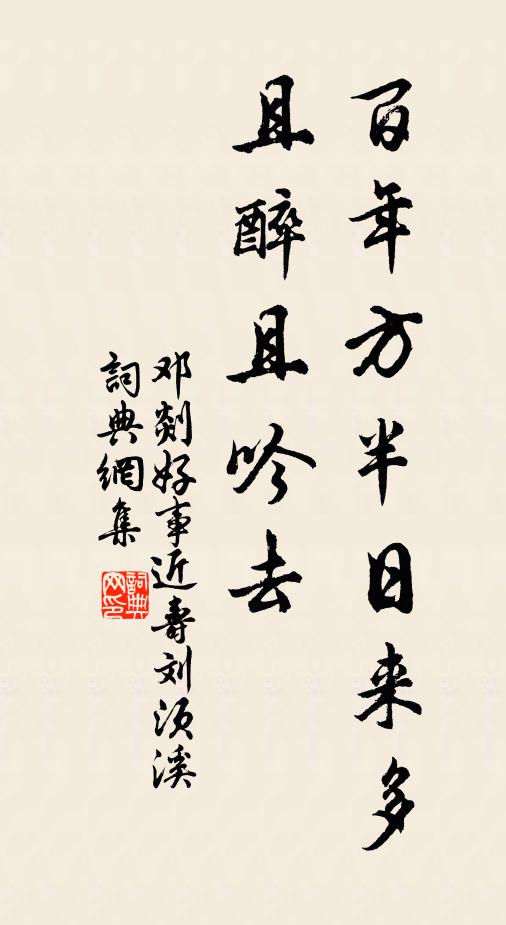 百年方半日来多
且醉且吟去
邓剡好事近寿刘须溪
詞典網集
詞典網印